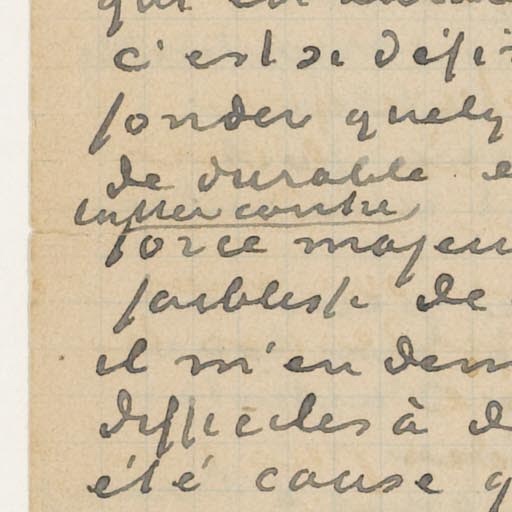 qui est
c'est se défi
fonder quelq
de durable e
lutter contre
force majeu
faiblesse de
il m'en dem
difficiles à d
été cause q